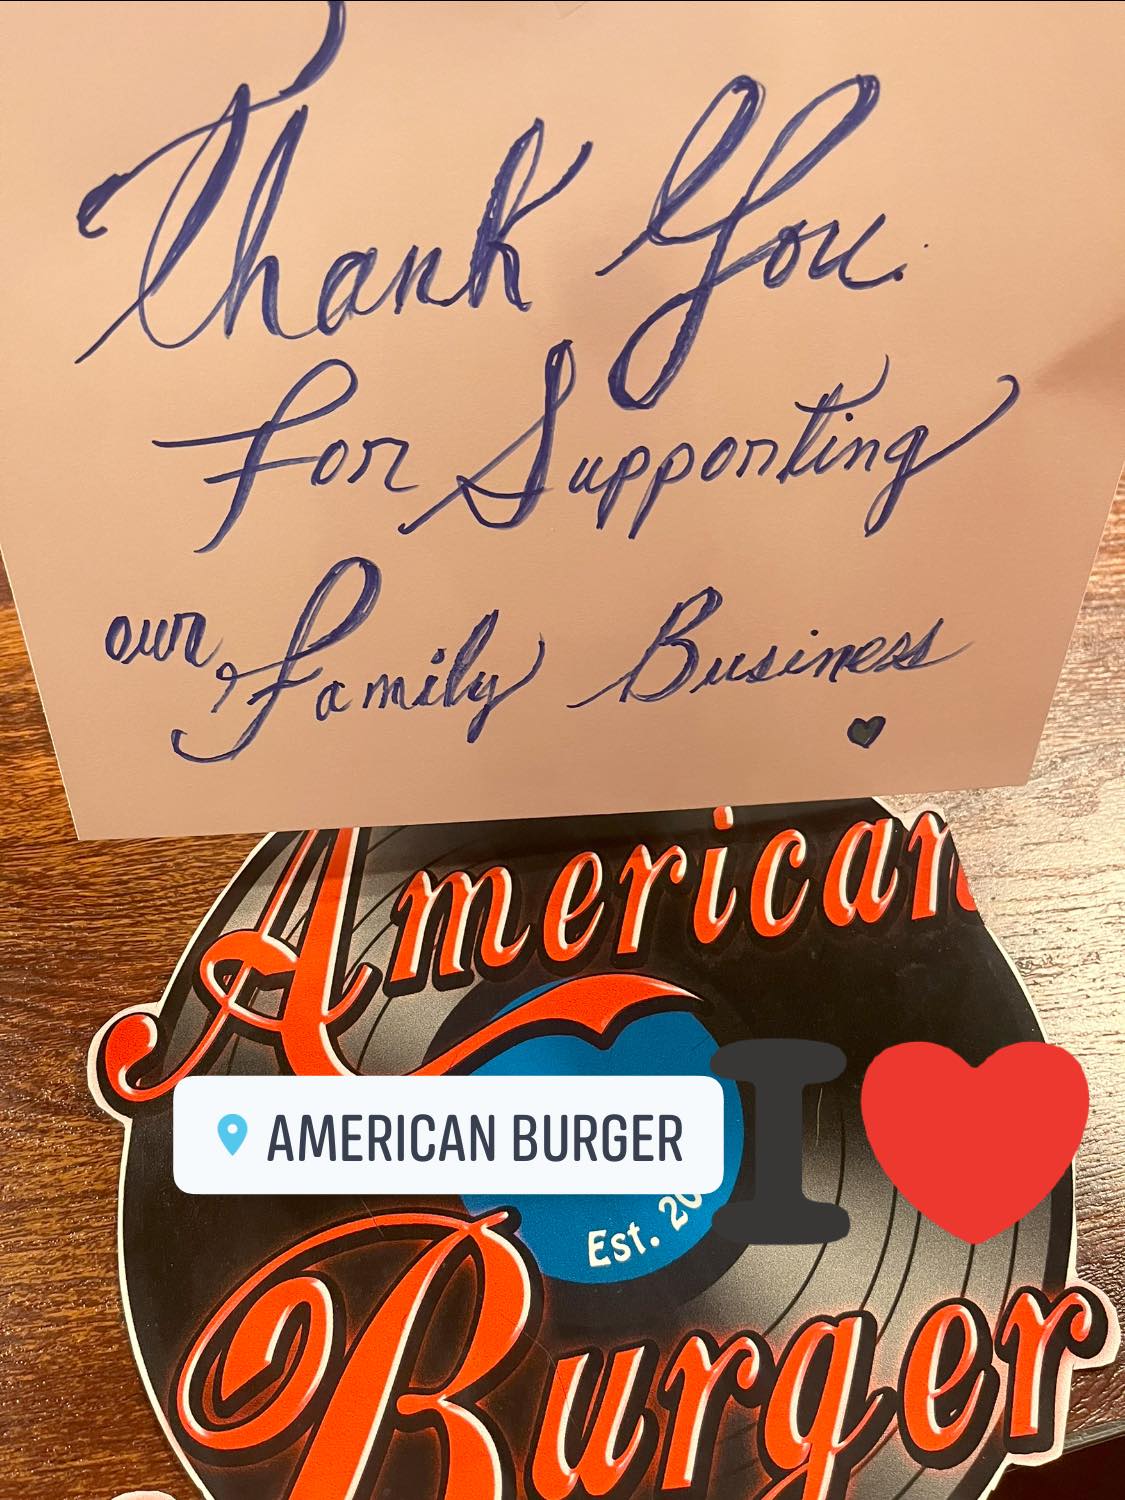 Thank You.
For Supporting
our Family Business
American
AMERICAN BURGER
I
Est.
Burger